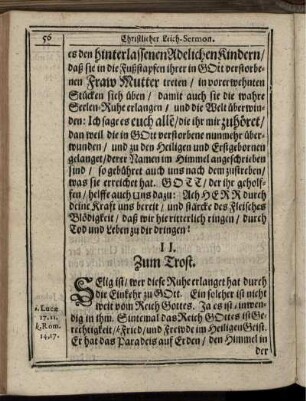 56
Christlicher Leich-Sermon.
es den hinterlassenen Adelichen Kindern/
daß sie in die Fußstapfen ihrer in GOtt verstorbe-
nen Fraw Mutter treten / in vorerwehnten
Stücken sich üben / damit auch sie die wahre
Seelen-Ruhe erlangen / und die Welt überwin-
den: Ich sage es euch alle/ die ihr mir zuhöret/
dan weil die in GOtt verstorbene nunmehr über-
wunden / und zu den Heiligen und Erstgebornen
gelanget/derer Namen im Himmel angeschrieben
sind / so gebühret auch uns nach dem zustreben/
was sie erreichet hat. GOTT/ der ihr geholf-
fen / helffe auch uns dazu: Ach HERR durch
deine Kraft uns bereit / und stärcke des Fleisches
Blödigkeit / daß wir hie ritterlich ringen / durch
Tod und Leben zu dir dringen!
II.
Zum Trost.
SElig ist/ wer diese Ruhe erlanget hat durch
die Einkehr zu GOtt. Ein solcher ist nicht
weit vom Reich Gottes. Ja es ist inwen-
dig in ihm. Sintemal das Reich Gottes ist Ge-
rechtigkeit/ Fried/ und Frewde im Heiligen Geist.
Er hat das Paradeis auf Erden / den Himmel in
der
Luca
17.21.
Rom.
14,17.